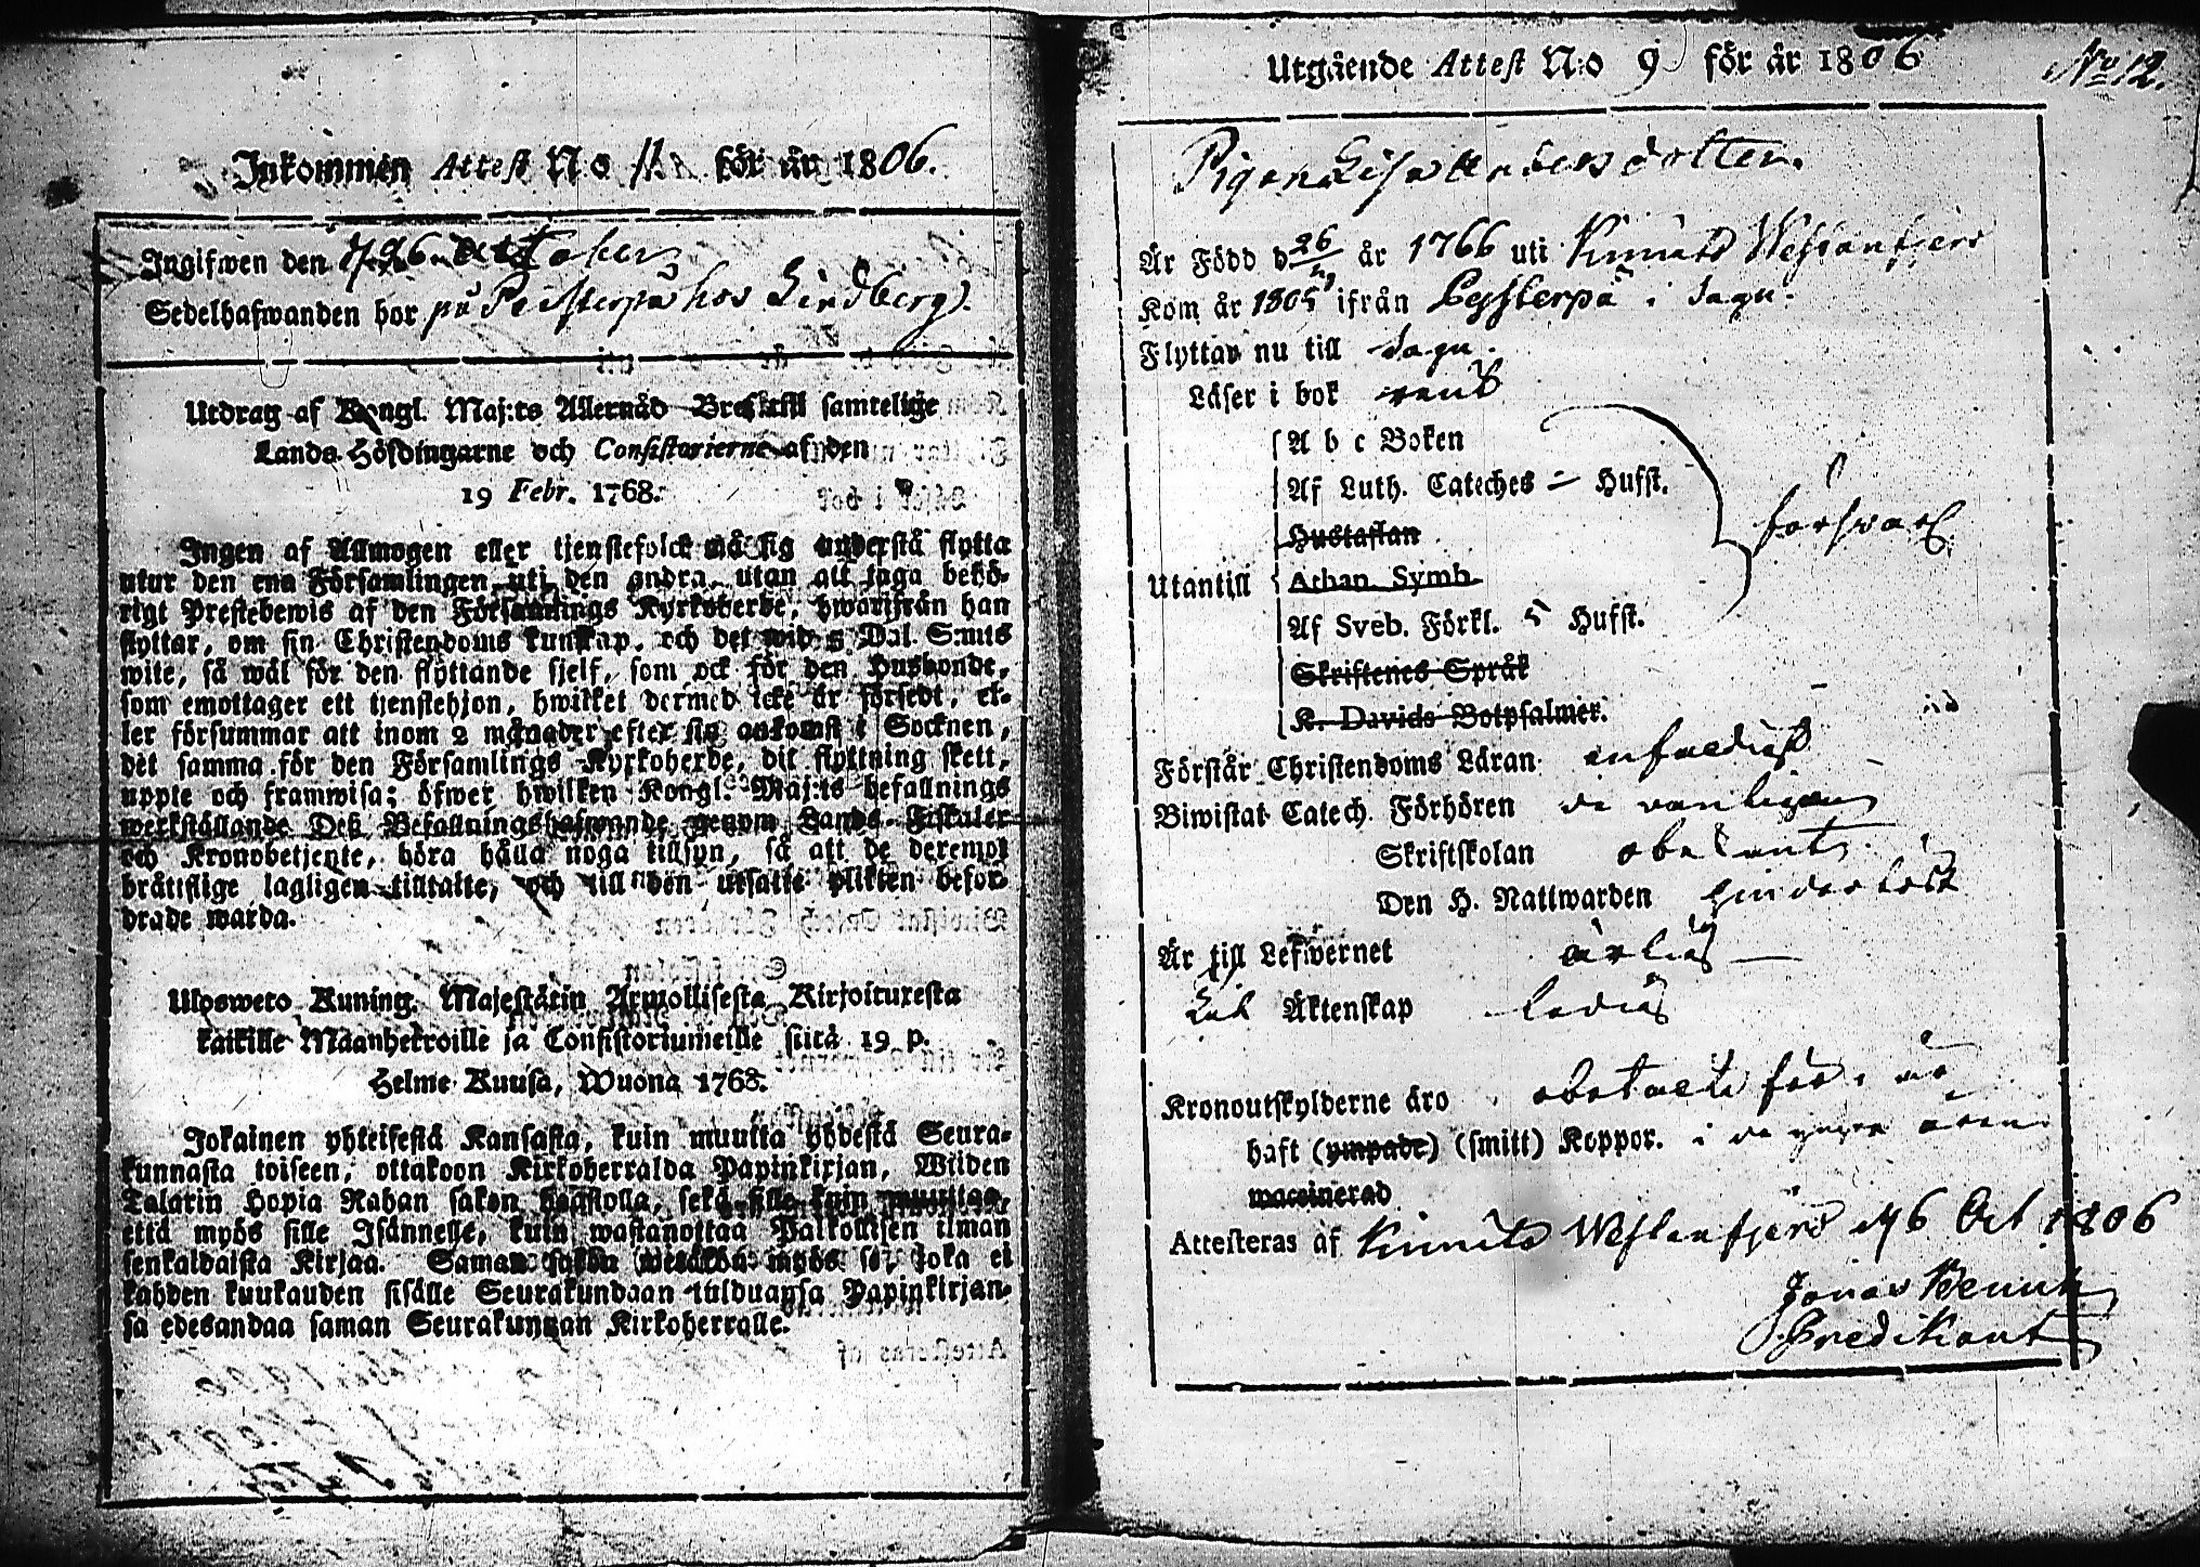 Inkommen Attest No 11. för år 1806.
Ingifwen den 26 October
Sedelhafwanden bor på Peisterpå hos Lindberg.
Utdrag af Kongl. Maj:ts Allernåd Bref till samtelige
Lands-Höfdingarne och Consistorierne af den
19 Febr. 1768.
Ingen af Allmogen eller tjenstefolck må sig understå flytta
utur den ena Församlingen uti den andra, utan att taga behö-
rigt Prestebewis af den Församlings Kyrkoherde, hwarifrån han
flyttar, om sin Christendoms kunskap, och det wid 5 Dal. S:mts
wite, så wäl för den flyttande sjelf, som ock för den Husbonde,
som emottager ett tjenstehjon, hwilket dermed icke är försedt, el-
ler försummar att inom 2 månader efter sin ankomst i Socknen,
det samma för den Församlings Kyrkoherde, dit flyttning skett,
uppte och framwisa; öfwer hwilken Kongl. Maj:ts befallnings
werkställande Deß Befallningshafwande genom Lands-Fiskaler
och Kronobetjente, böra hålla noga tillsyn, så att de deremot
bråttslige lagligen tilltalte, och till den utsatte plikten befor-
drade warda.
Ulosweto Kuning. Majestätin Armollisesta Kirjoituxesta
kaikille Maanherroille ja Consistoriumeille siitä 19 p.
Helme Kuusa, Wuona 1768.
Jokainen yhteisestä Kansasta, kuin muutta yhdestä Seura-
kunnasta toiseen, ottakoon Kirkoherralda Papinkirjan, Wiiden
Talarin Hopia Rahan sakon haastolla, sekä sille kuin muuttaa,
että myös sille Isännelle, kuin wastanottaa Palkollisen ilman
senkaldaista Kirjaa. Saman sakon wetäkön myös se, joka ei
kahden kuukauden sisälle Seurakundaan tulduansa Papinkirjan-
sa edesandaa saman Seurakunnan Kirkoherralle.
Utgående Attest N:o 9 för år 1806
No 12.
Pigan Lisa Andersdotter.
Är Född d 26/ år 1766 uti Kimito Westanfjerd
Kom år 1805 ifrån Peysterpå i Sagu.
Flyttar nu till Sagu.
Läser i bok rent
A b c Boken
Af Luth. Cateches = Hufst.
Hustaflan
Utantill
Athan. Symb.
försvarl.
Af Sveb. Förkl. 5 Hufst.
Skriftenes Språk
K. Davids Botpsalmer.
Förstår Christendoms Läran enfaldigt
Biwistat Catech. Förhören de vanliga
Skriftskolan
Den H. Nattwarden hinderlöst
Är till Lefwernet ärlig
Äktenskap ledig
Kronoutskylderne äro obetalte för i år
haft (ympade) (smitt) Koppor. i de yngre åren
waccinerad
Attesteras af Kimito Westanfjerd d 6 Oct 1806
Jonas
Predikant